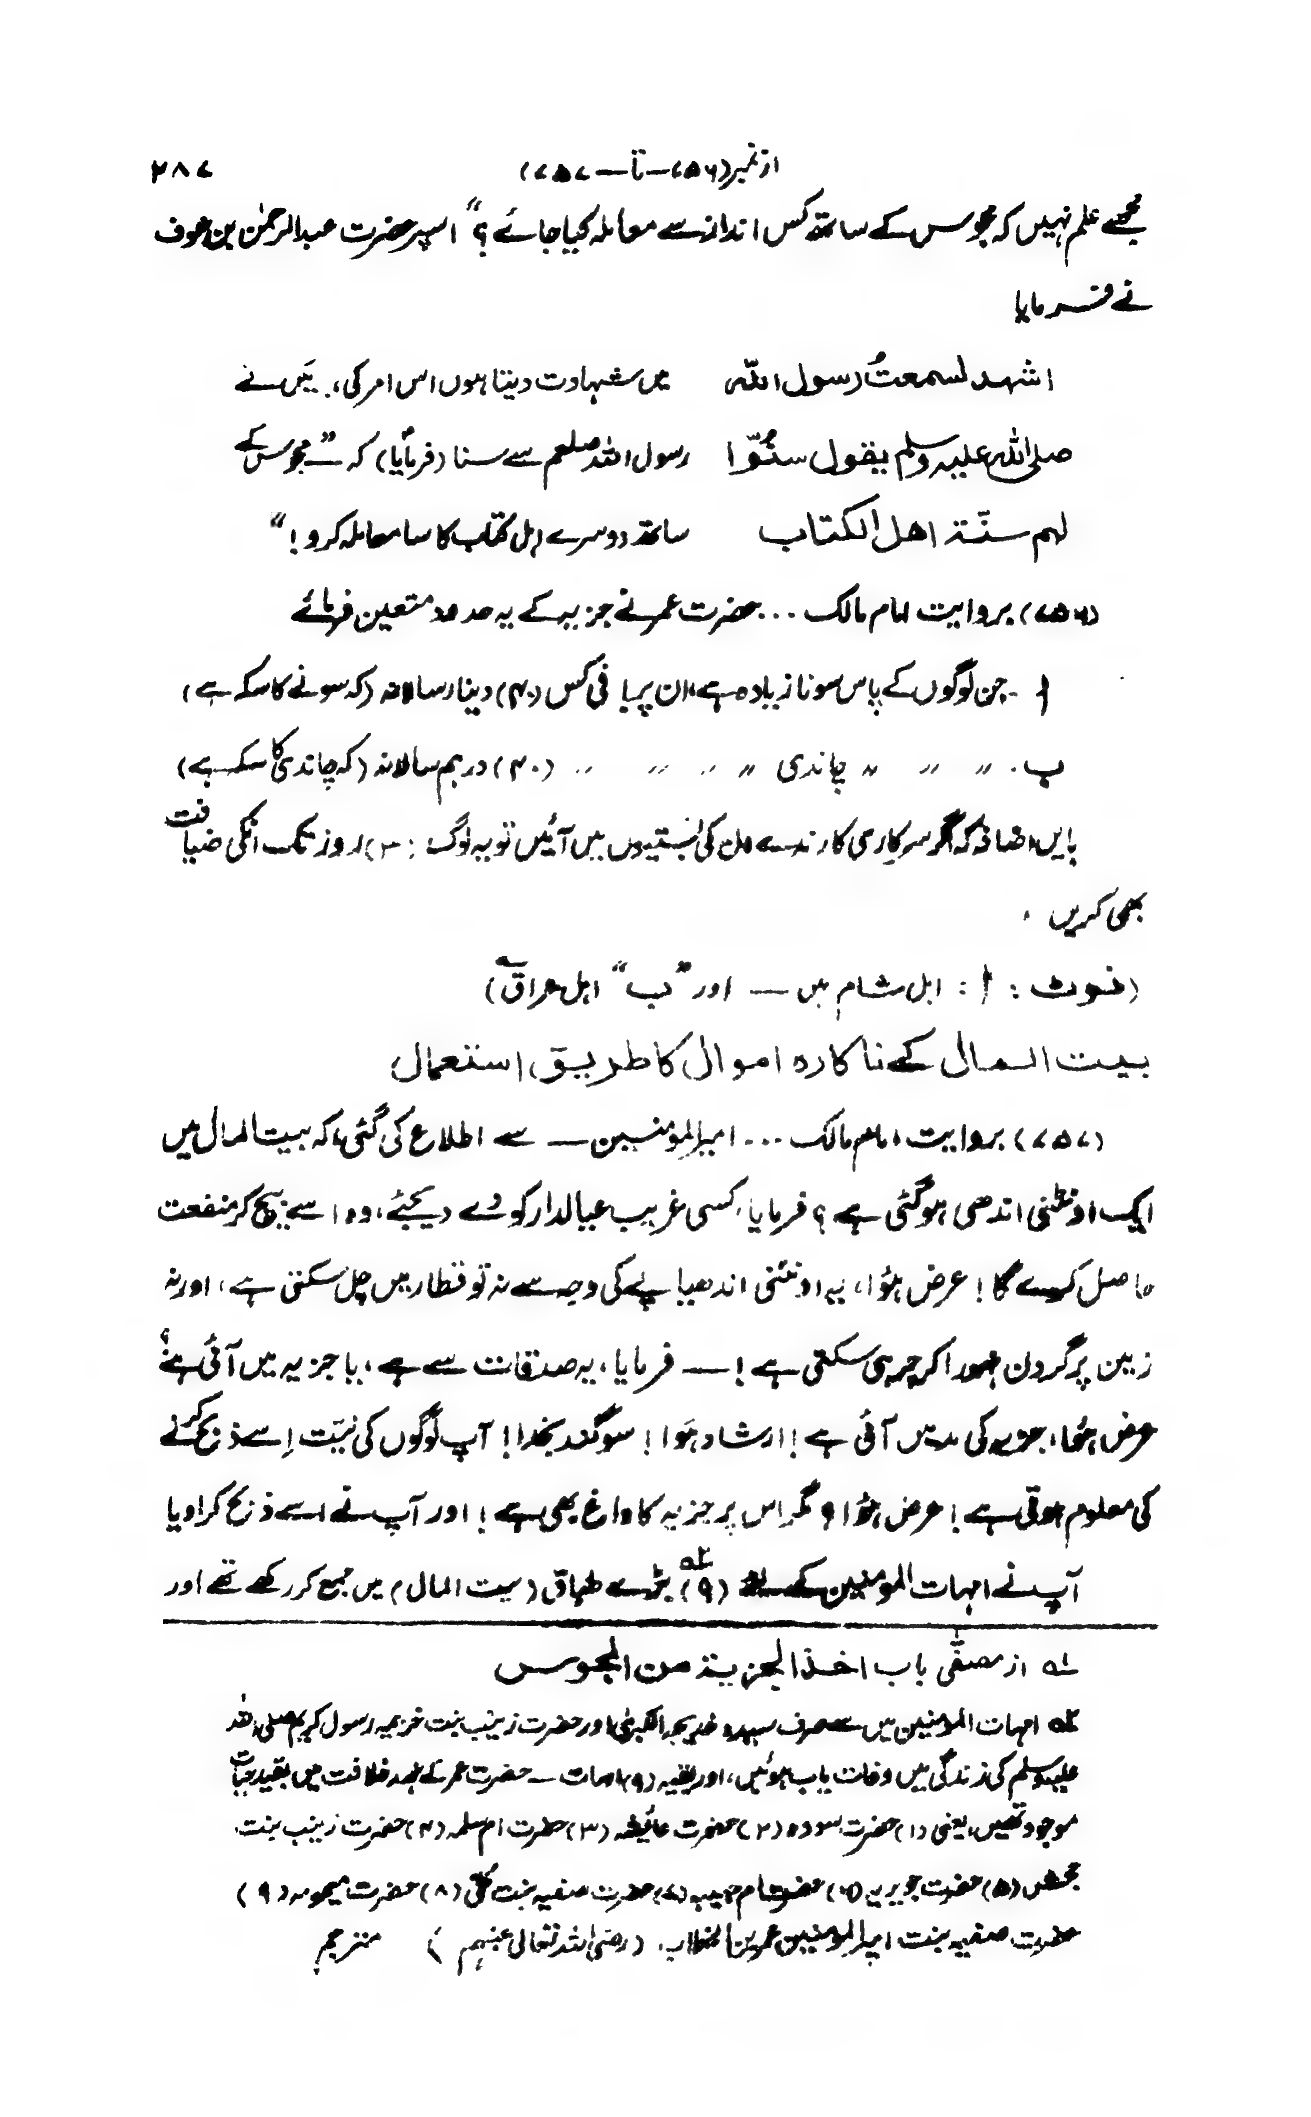 از نمبر (۷۵۶) — تا — (۷۵۷) ۲۸۷
مجھے علم نہیں کہ مجوس کے ساتھ کس انداز سے معاملہ کیا جائے؟" اسپر حضرت عبدالرحمٰن بن عوف
نے فرمایا
اشهد لسمعتُ رسول اللّٰه میں شہادت دیتا ہوں اس امر کی، میَں نے
صلی اللّٰه علیہ وسلم یقول سنُّوا رسول اللہ صلعم سے سنا (فرمایا) کہ "— مجوس کے
لہم سنّة اهل الکتاب ساتھ دوسرے اہل کتاب کا سا معاملہ کرو!"
(۷۵۶) بروایت امام مالک ... حضرت عمر نے جزیہ کے یہ حدود متعین فرمائے
ا - جن لوگوں کے پاس سونا زیادہ ہے، ان پر فی کس (۴) دینار سالانہ (کہ سونے کا سکہ ہے)
ب . 〃 〃 〃 چاندی 〃 〃 〃 〃 (۴۰) درہم سالانہ (کہ چاندی کا سکہ ہے)
بایں اضافہ کہ اگر سرکاری کارندے ان کی بستیوں میں آئیں تو یہ لوگ (۳) روز تک انکی ضیافت
بھی کریں ۔
(نوٹ : ا : اہل شام ہیں — اور "ب" اہل عراق ؎)
بیت المال کے ناکارہ اموال کا طریق استعمال
(۷۵۷) بروایت امام مالک ... امیر المومنین — سے اطلاع کی گئی، کہ بیت المال میں
ایک اونٹنی اندھی ہو گئی ہے؟ فرمایا، کسی غریب عیالدار کو دے دیجئے، وہ اسے بیچ کر منفعت
حاصل کرے گا! عرض ہؤا، یہ اونٹنی اندھیاپے کی وجہ سے نہ تو قطار میں چل سکتی ہے، اور نہ
زمین پر گردن جھکا کر چر ہی سکتی ہے! — فرمایا، یہ صدقات سے ہے، یا جزیہ میں آئی ہے؟
عرض ہؤا، جزیہ کی مد میں آئی ہے! ارشاد ہوَا! سوگند بخدا! آپ لوگوں کی نیّت اِسے ذبح کرنے
کی معلوم ہوتی ہے! عرض ہؤا؟ مگر اس پر جزیہ کا داغ بھی ہے! اور آپ نے اسے ذبح کرا دیا
آپ نے امہات المومنین کے لئے (۹) ؎۲ بڑے طباق (بیت المال) میں جمع کر رکھے تھے اور
؎۱ از مصفّٰی باب اخذ الجزیة من المجوس
؎۲ امہات المومنین میں سے صرف سیدہ خدیجہ الکبریٰ اور حضرت زینب بنت خزیمہ رسول کریم صلی اللہ
علیہ وسلم کی زندگی میں وفات یاب ہوئیں، اور بقیہ (۹) امہات — حضرت عمر کے عہد خلافت میں بقید حیات
موجود تھیں، یعنی (۱) حضرت سودہ (۲) حضرت عائشہ (۳) حضرت ام سلمہ (۴) حضرت زینب بنت
جحش (۵) حضرت جویریہ (۶) حضرت ام حبیبہ (۷) حضرت صفیہ بنت حیی (۸) حضرت میمونہ (۹)
حضرت صفیہ بنت امیر المومنین عمر بن الخطاب، (رضی اللہ تعالیٰ عنہم) مترجم